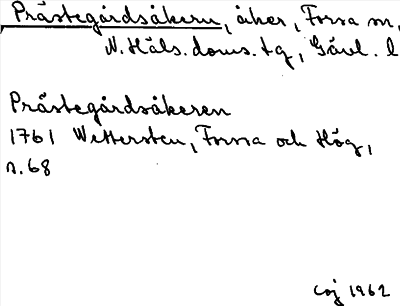 Prästegårdsåkern, åker, Forsa sn,
N. Häls. doms. tg, Gävl. l
Prästegårdsåkeren
1761 Wettersten, Forssa och Hög,
s. 68
CEJ 1962